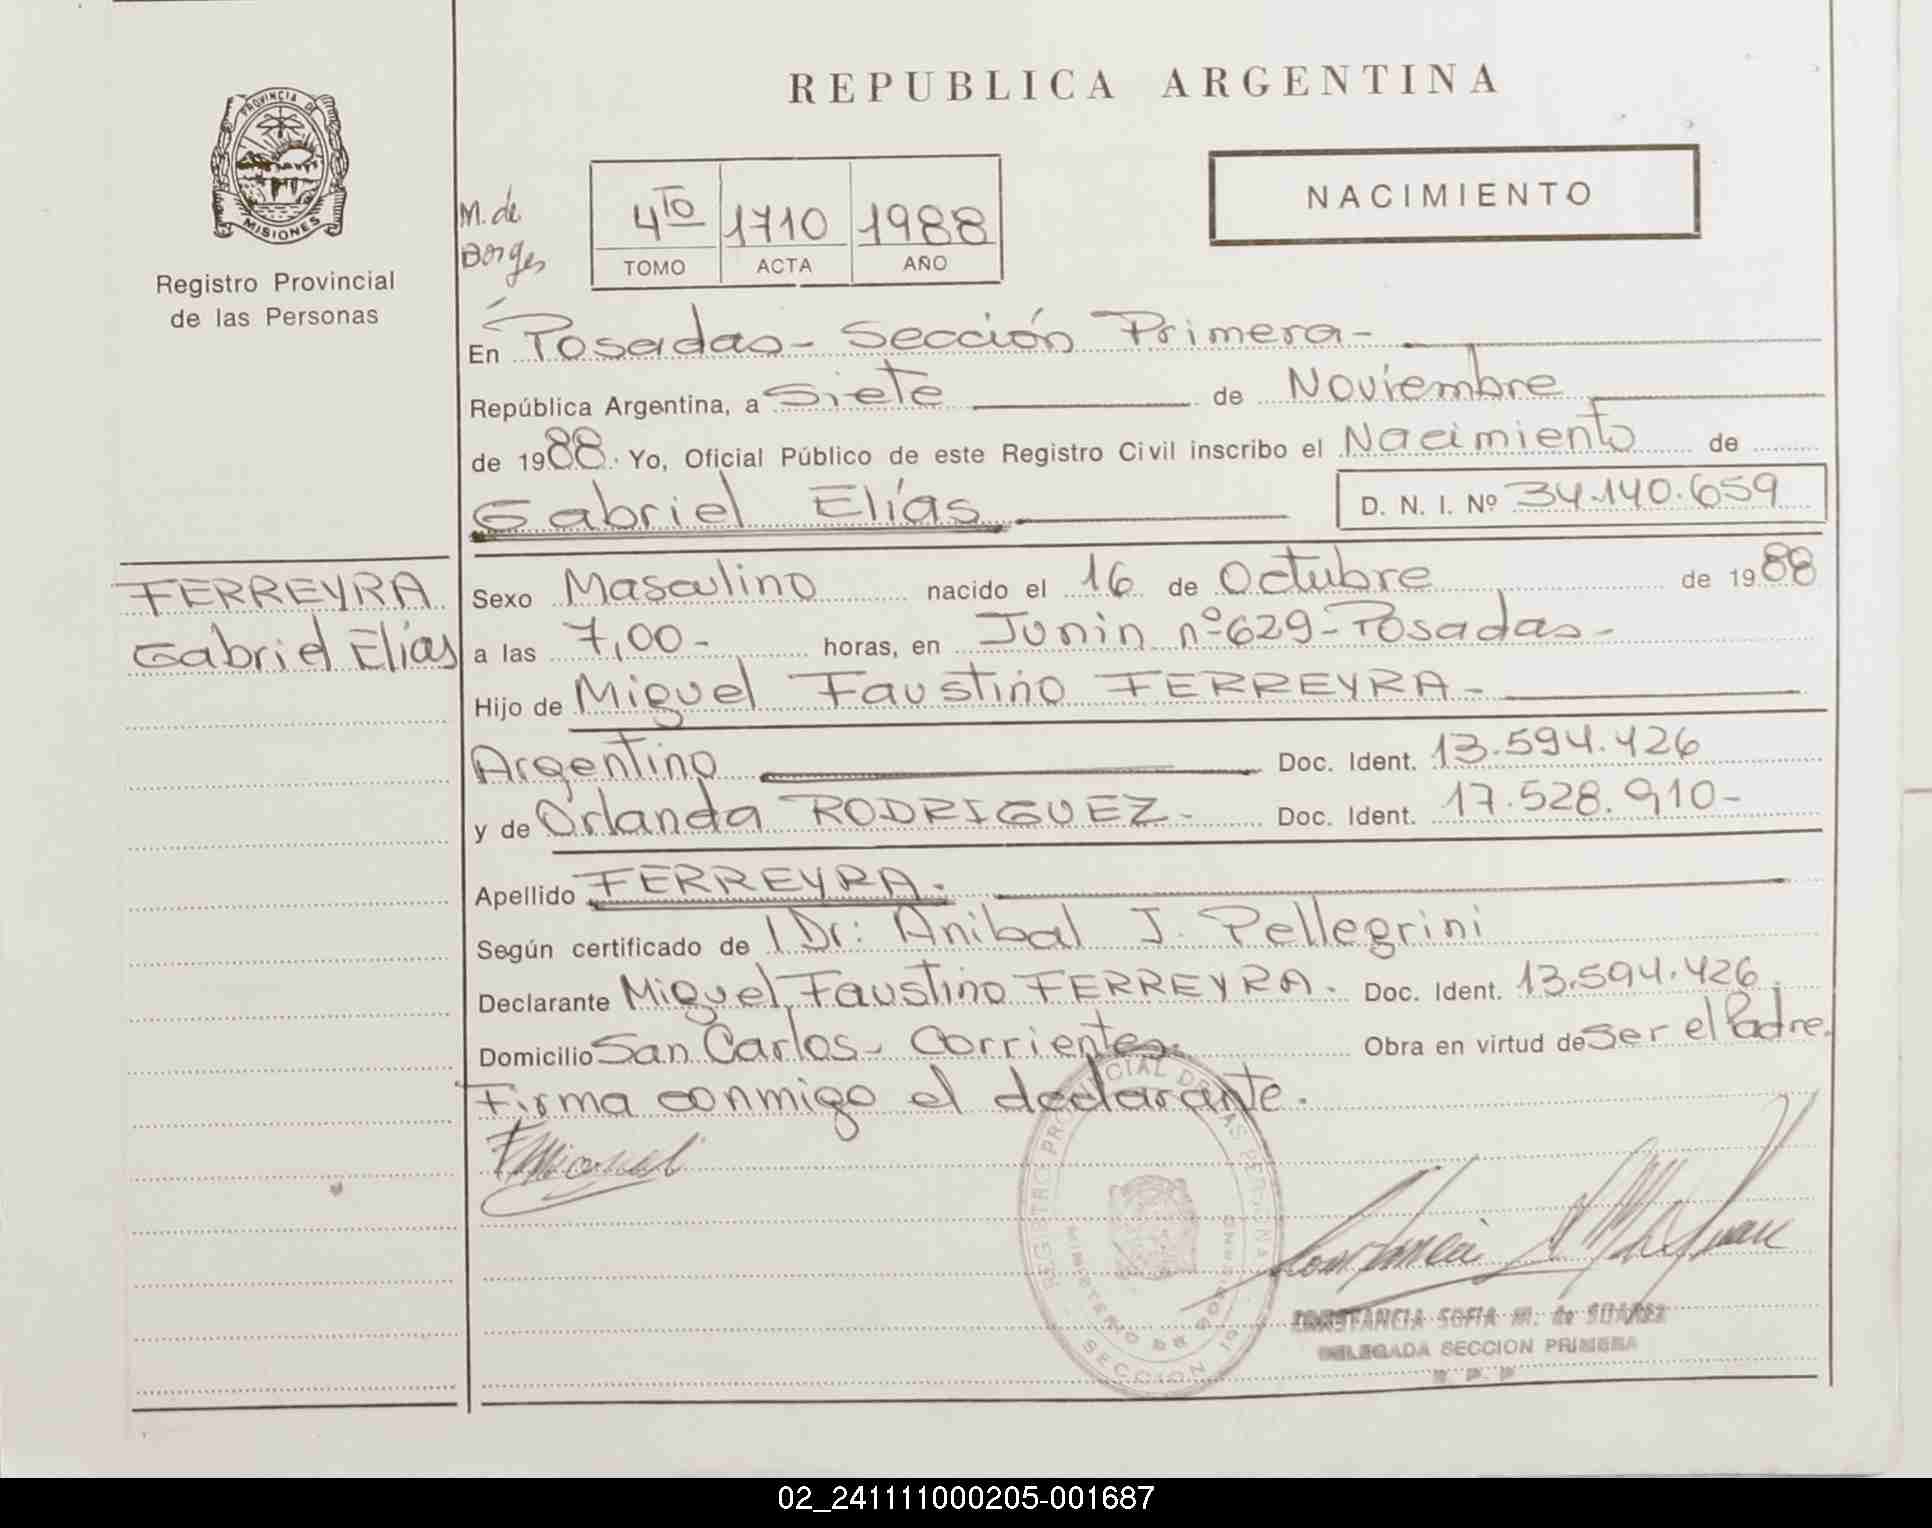 REPUBLICA ARGENTINA
PROVINCIA DE
MISIONES
Registro Provincial
de las Personas
M. de
Borges
4TO 1710 1988
TOMO ACTA AÑO
NACIMIENTO
En Posadas - Sección Primera -
República Argentina, a Siete de Noviembre
de 1988. Yo, Oficial Público de este Registro Civil inscribo el Nacimiento de
Gabriel Elías D. N. I. Nº 34.140.659
FERREYRA
Gabriel Elías
Sexo Masculino nacido el 16 de Octubre de 1988
a las 7,00- horas, en Junin nº 629 - Posadas -
Hijo de Miguel Faustino FERREYRA -
Argentino Doc. Ident. 13.594.426
y de Orlanda RODRIGUEZ - Doc. Ident. 17.528.910-
Apellido FERREYRA.
Según certificado de Dr: Anibal J. Pellegrini
Declarante Miguel Faustino FERREYRA. Doc. Ident. 13.594.426.
Domicilio San Carlos - Corrientes. Obra en virtud de ser el Padre.
Firma conmigo el declarante.
F Miguel
REGISTRO PROVINCIAL DE LAS PERSONAS
MINISTERIO DE GOBIERNO
SECCION 1º
CONSTANCIA SOFIA M. de SUAREZ
DELEGADA SECCION PRIMERA
R. P. P.
02_241111000205-001687